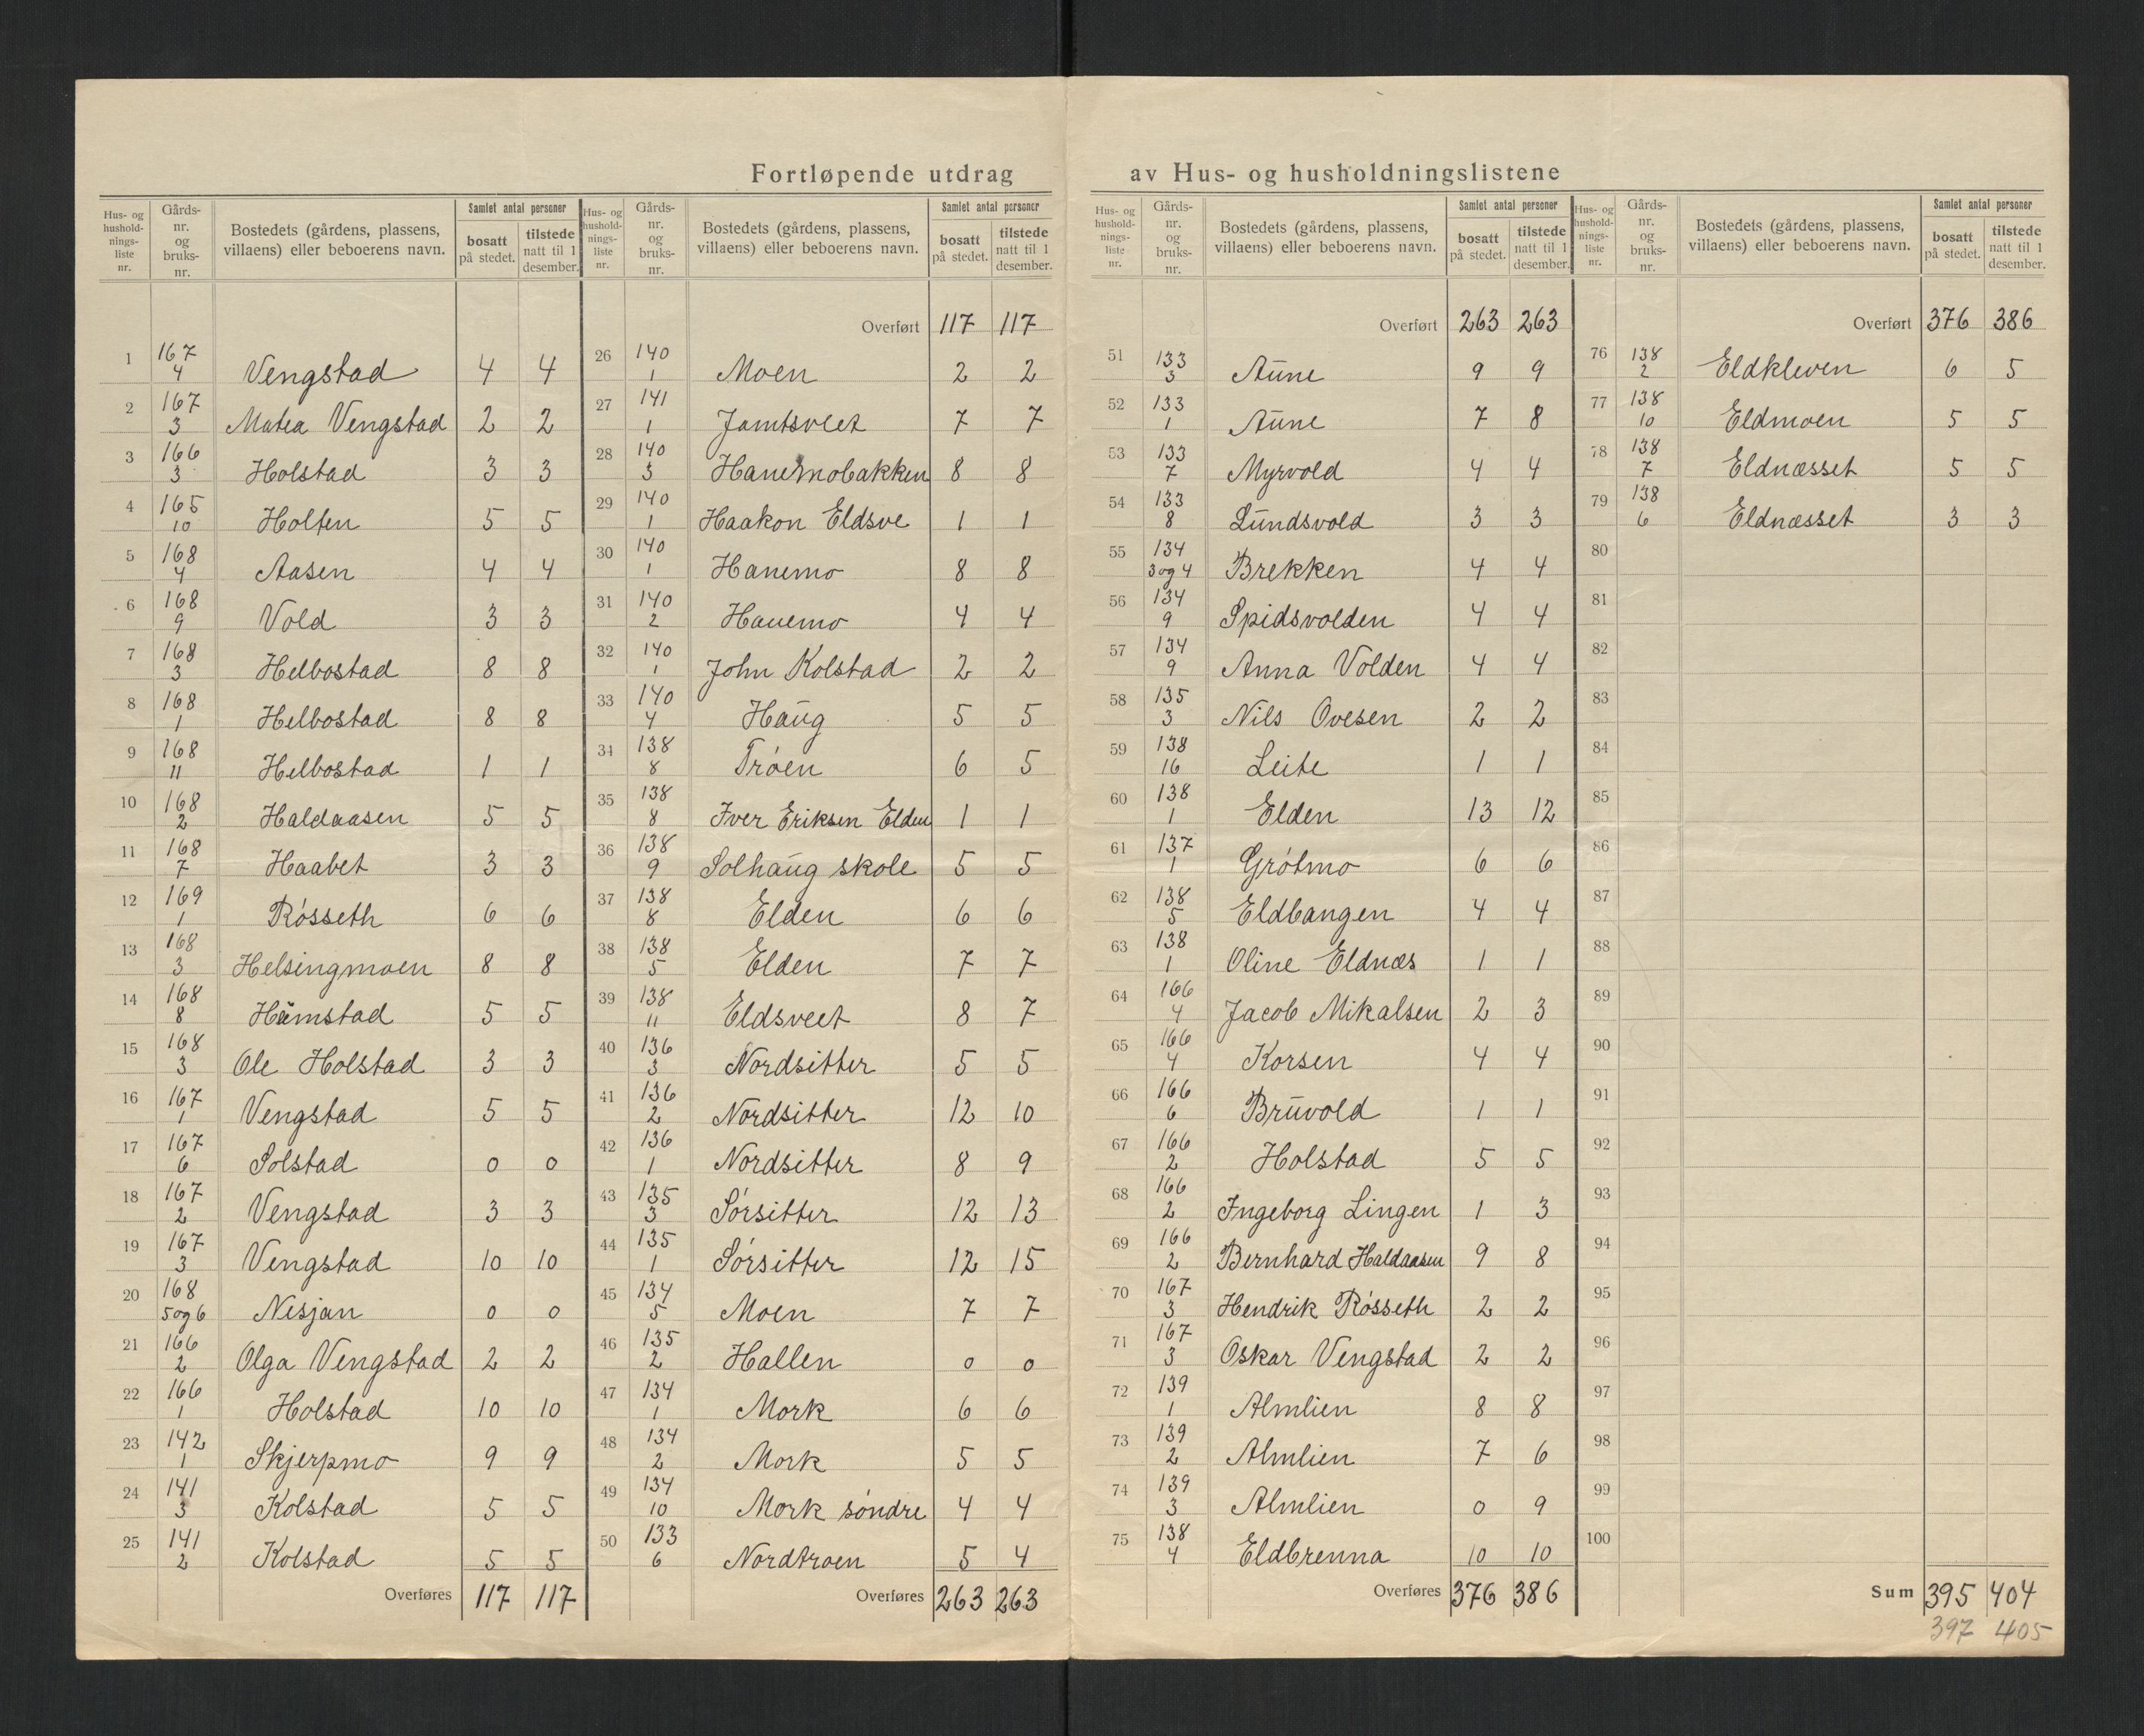 Fortløpende utdrag av Hus- og husholdningslistene
Hus- og hushold-nings-liste nr. Gårds-nr. og bruks-nr. Bostedets (gårdens, plassens, villaens) eller beboerens navn. Samlet antal personer bosatt på stedet. tilstede natt til 1 desember.
1 167/4 Vengstad 4 4
2 167/3 Matea Vengstad 2 2
3 166/3 Holstad 3 3
4 165/10 Holten 5 5
5 168/4 Aasen 4 4
6 168/9 Vold 3 3
7 168/3 Helbostad 8 8
8 168/1 Helbostad 8 8
9 168/11 Helbostad 1 1
10 168/2 Haldaasen 5 5
11 168/7 Haabet 3 3
12 169/1 Røsseth 6 6
13 168/3 Helsingmoen 8 8
14 168/8 Hämstad 5 5
15 168/3 Ole Holstad 3 3
16 167/1 Vengstad 5 5
17 167/6 Solstad 0 0
18 167/2 Vengstad 3 3
19 167/3 Vengstad 10 10
20 168/5 og 6 Nesjan 0 0
21 166/2 Olga Vengstad 2 2
22 166/1 Holstad 10 10
23 142/1 Skjerpmo 9 9
24 141/3 Kolstad 5 5
25 141/2 Kolstad 5 5
Overføres 117 117
Hus- og hushold-nings-liste nr. Gårds-nr. og bruks-nr. Bostedets (gårdens, plassens, villaens) eller beboerens navn. Samlet antal personer bosatt på stedet. tilstede natt til 1 desember.
Overført 117 117
26 140/1 Moen 2 2
27 141/1 Jamtsveet 7 7
28 140/3 Hanemobakken 8 8
29 140/1 Haakon Eldsve 1 1
30 140/1 Hanemo 8 8
31 140/2 Hanemo 4 4
32 140/1 John Kolstad 2 2
33 140/4 Haüg 5 5
34 138/8 Trøen 6 5
35 138/8 Iver Eriksen Elden 1 1
36 138/9 Solhaüg skole 5 5
37 138/8 Elden 6 6
38 138/5 Elden 7 7
39 138/11 Eldsveet 8 7
40 136/3 Nordsitter 5 5
41 136/2 Nordsitter 12 10
42 136/1 Nordsitter 8 9
43 135/3 Sørsitter 12 13
44 135/1 Sørsitter 12 15
45 134/5 Moen 7 7
46 135/2 Hallen 0 0
47 134/1 Mork 6 6
48 134/2 Mork 5 5
49 134/10 Mork søndre 4 4
50 133/6 Nordtroen 5 4
Overføres 263 263
Hus- og hushold-nings-liste nr. Gårds-nr. og bruks-nr. Bostedets (gårdens, plassens, villaens) eller beboerens navn. Samlet antal personer bosatt på stedet. tilstede natt til 1 desember.
Overført 263 263
51 133/3 Aüne 9 9
52 133/1 Aüne 7 8
53 133/7 Myrvold 4 4
54 133/8 Lündsvold 3 3
55 134/3 og 4 Brekken 4 4
56 134/9 Spidsvolden 4 4
57 134/9 Anna Volden 4 4
58 135/3 Nils Ovesen 2 2
59 138/16 Leite 1 1
60 138/1 Elden 13 12
61 137/1 Grøtmo 6 6
62 138/5 Eldbangen 4 4
63 138/1 Oline Eldnæs 1 1
64 166/4 Jacob Mikalsen 2 3
65 166/4 Korsen 4 4
66 166/6 Brüvold 1 1
67 166/2 Holstad 5 5
68 166/2 Ingeborg Lingen 1 3
69 166/2 Bernhard Haldaasen 9 8
70 167/3 Hendrik Røsseth 2 2
71 167/3 Oskar Vengstad 2 2
72 139/1 Almlien 8 8
73 139/2 Almlien 7 6
74 139/3 Almlien 0 9
75 138/4 Eldbrenna 10 10
Overføres 376 386
Hus- og hushold-nings-liste nr. Gårds-nr. og bruks-nr. Bostedets (gårdens, plassens, villaens) eller beboerens navn. Samlet antal personer bosatt på stedet. tilstede natt til 1 desember.
Overført 376 386
76 138/2 Eldkleven 6 5
77 138/10 Eldmoen 5 5
78 138/7 Eldnæsset 5 5
79 138/6 Eldnæsset 3 3
80
81
82
83
84
85
86
87
88
89
90
91
92
93
94
95
96
97
98
99
100
Sum 395 404
397 405